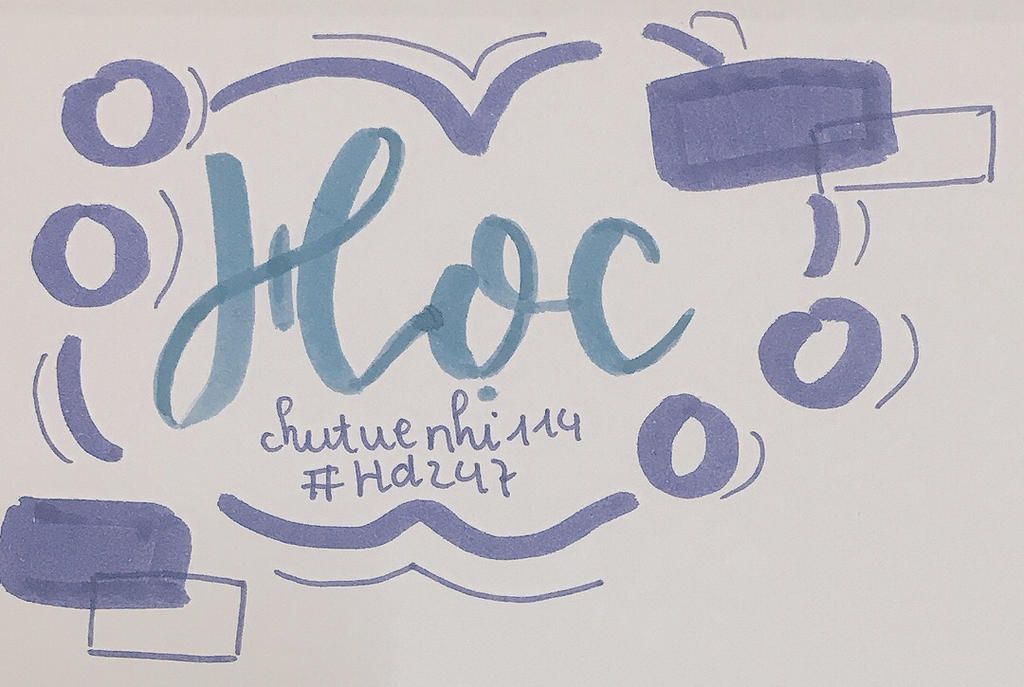 Học
chutuenhi114
#Hd247